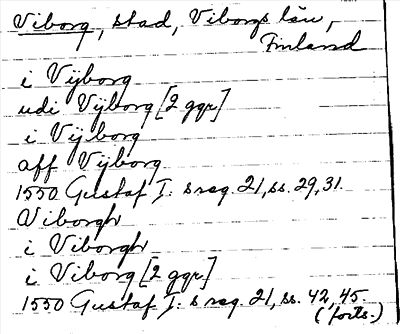 Viborg, stad, Viborgs län,
Finland
i Vijborg
udi Vijborg [2 ggr]
i Vijborg
aff Vijborg
1550 Gustaf I:s reg. 21, ss. 29, 31.
Viborgh
i Viborgh
i Viborg [2 ggr]
1550 Gustaf I:s reg. 21, ss. 42, 45.
(forts.)